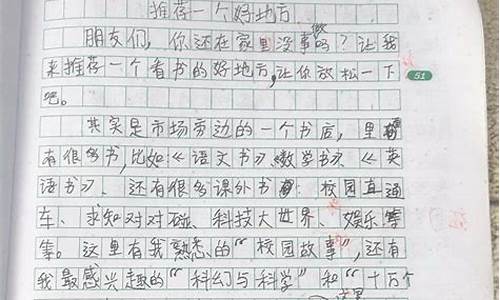 推荐一个好地方
朋友们，你还在家里没事做吗？让我
来推荐一个看书的好地方，让你放松一下
51
吧。
其实是市场旁边的一个书店，里
有很多书，比如《语文书》《数学书》、《英
语书》、还有很多课外书：校园直通
车、求知对对碰、科技大世界、娱乐等
等。这里有我熟悉的“校园故事”，还有
我最感兴趣的“科幻与科学”和“十万个
这里